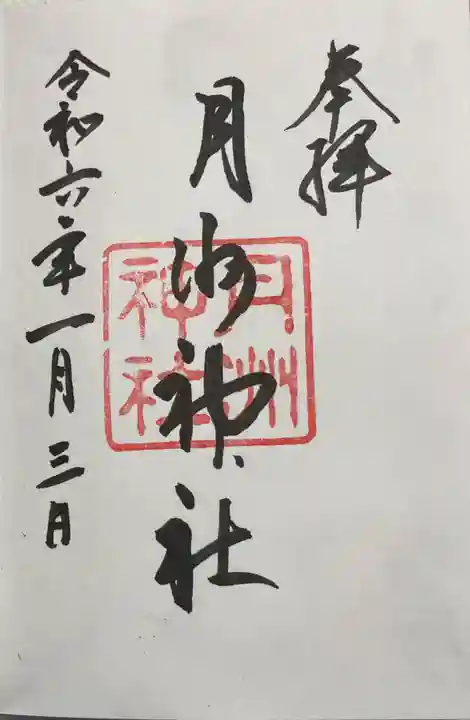 奉拝
月洲神社
令和六年一月三日
月洲神社